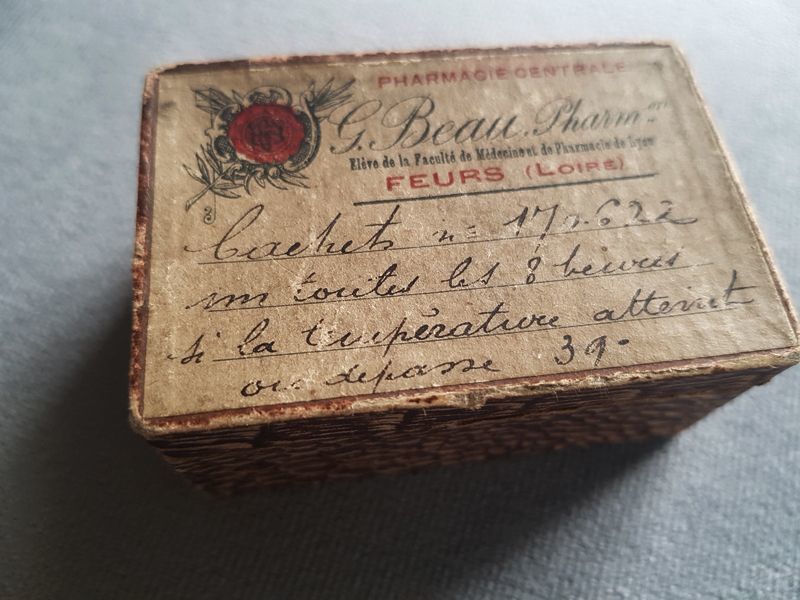 PHARMACIE CENTRALE
G. Beau, Pharm.en
Elève de la Faculté de Médecine et de Pharmacie de Lyon
FEURS (LOIRE)
Cachets n=
un toutes les 8 heures
si la température atteint
ou dépasse 39°